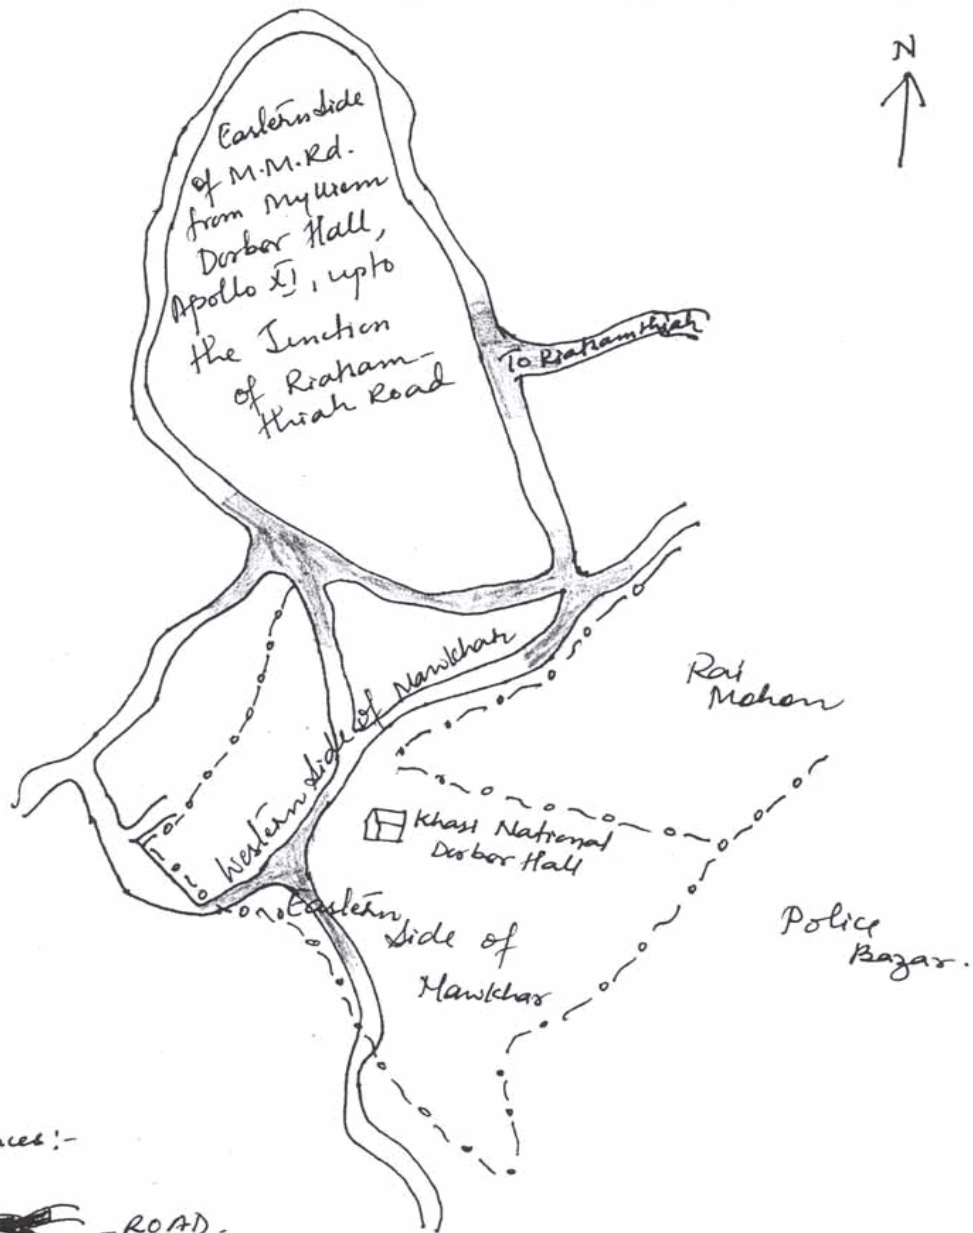 N
Eastern Side
of M.M.Rd.
from Mylliem
Dorbor Hall,
Apollo XI, upto
the Junction
of Riatsam-
thiah Road
To Riatsamthiah
Western Side of Mawkhar
Rai
Mohon
Khasi National
Dorbor Hall
Eastern
Side of
Mawkhar
Police
Bazar.
nces:-
- ROAD.